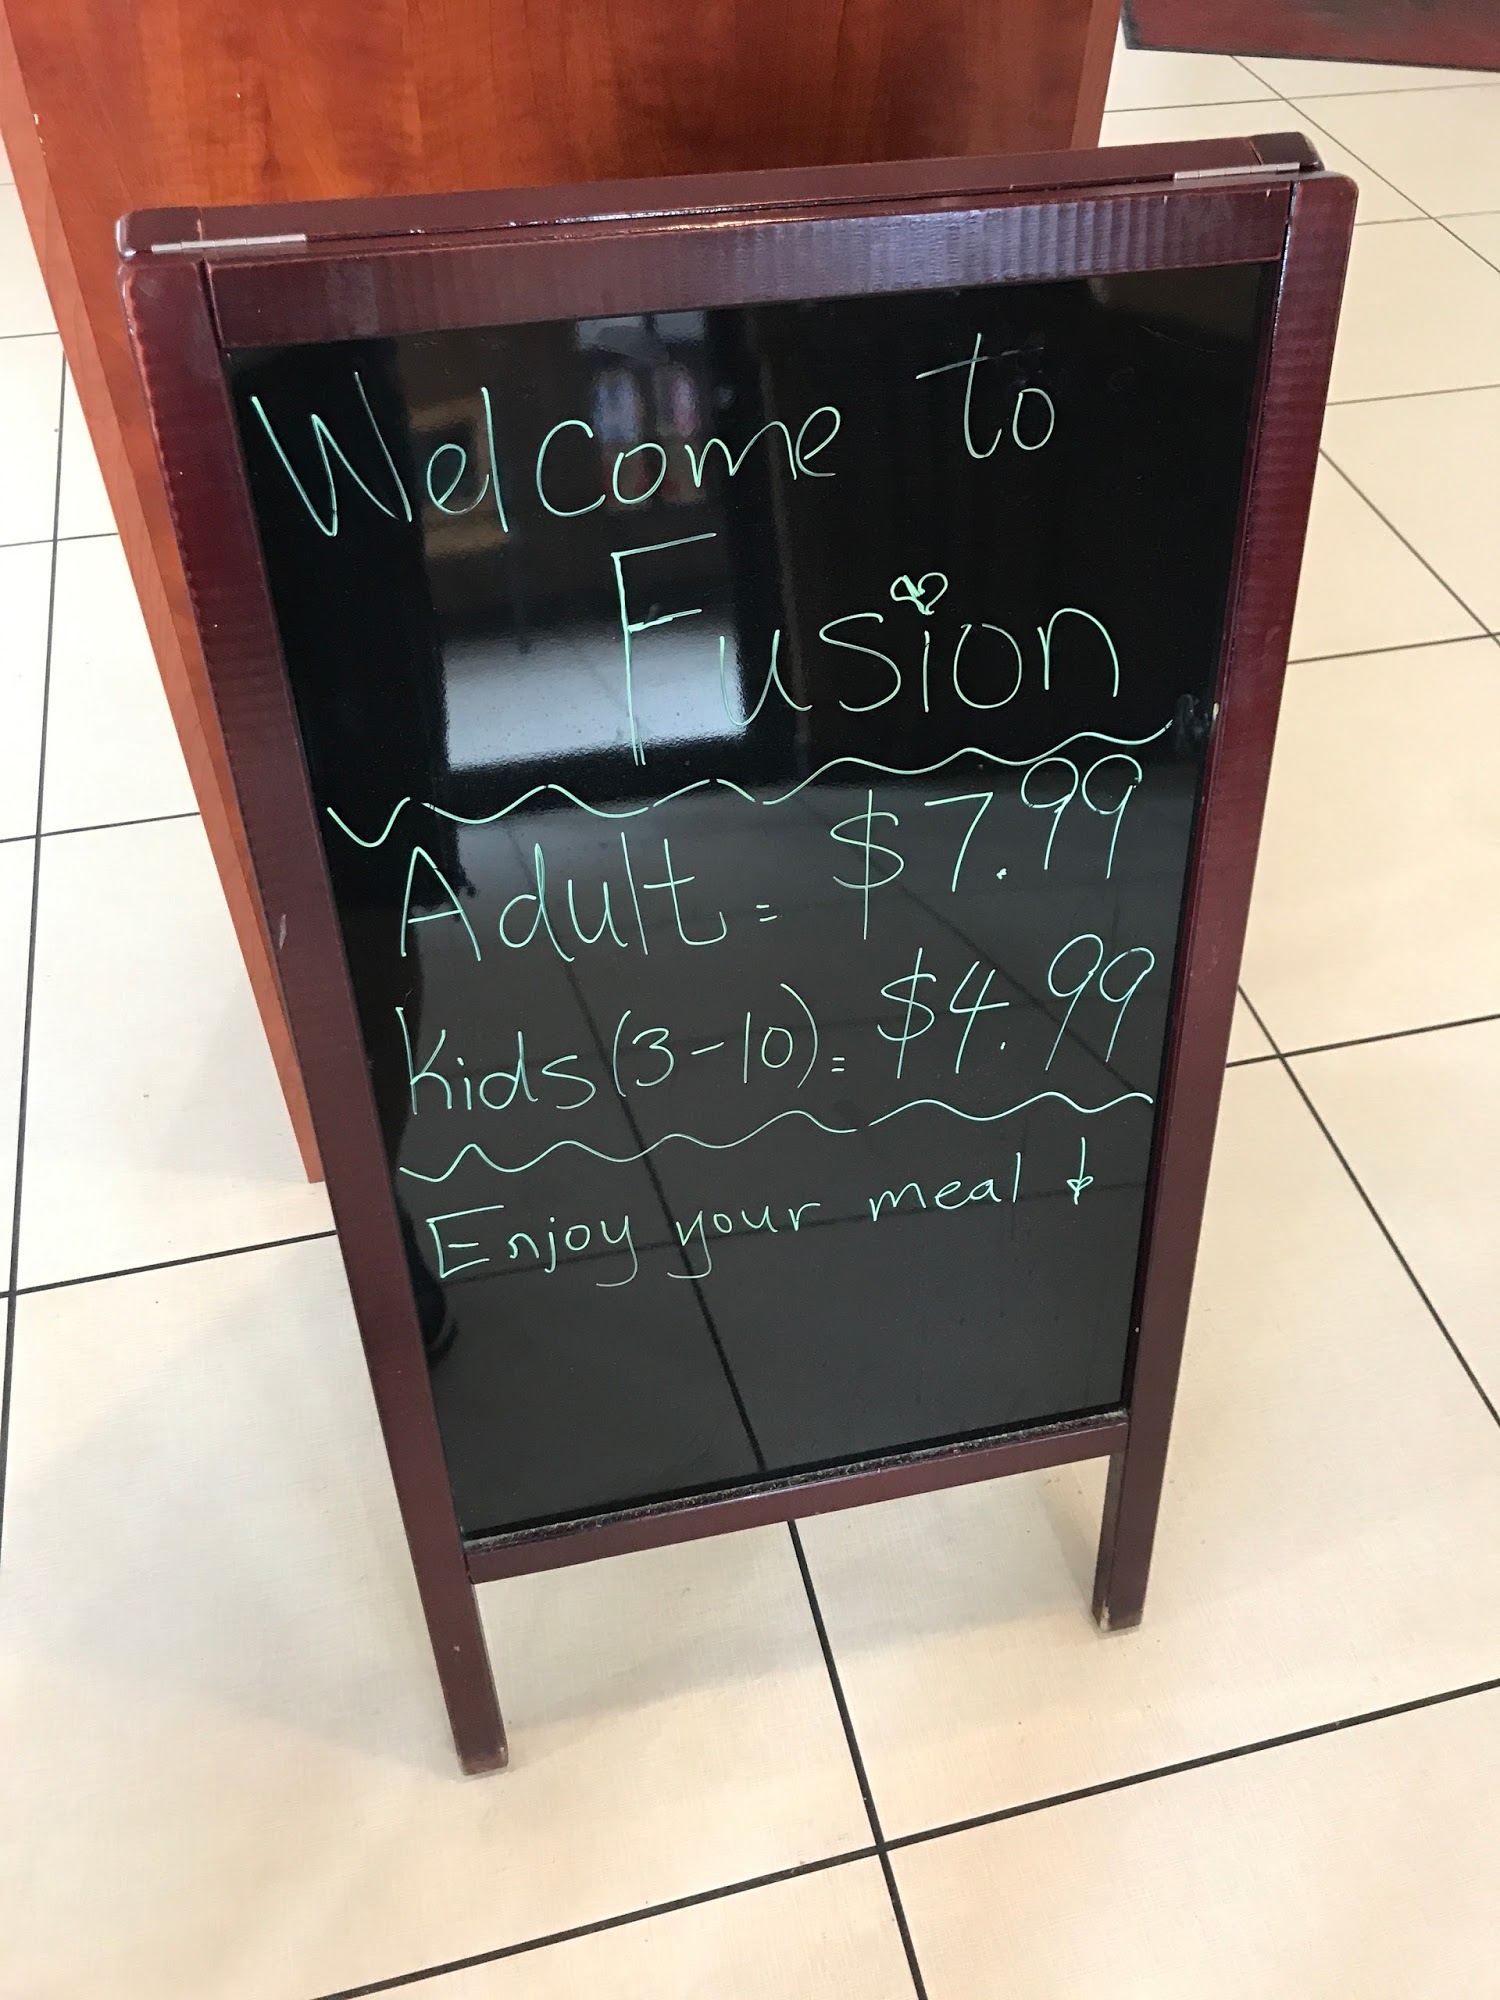 Welcome to
Fusion
Adult = $7.99
Kids (3-10) = $4.99
Enjoy your meal !